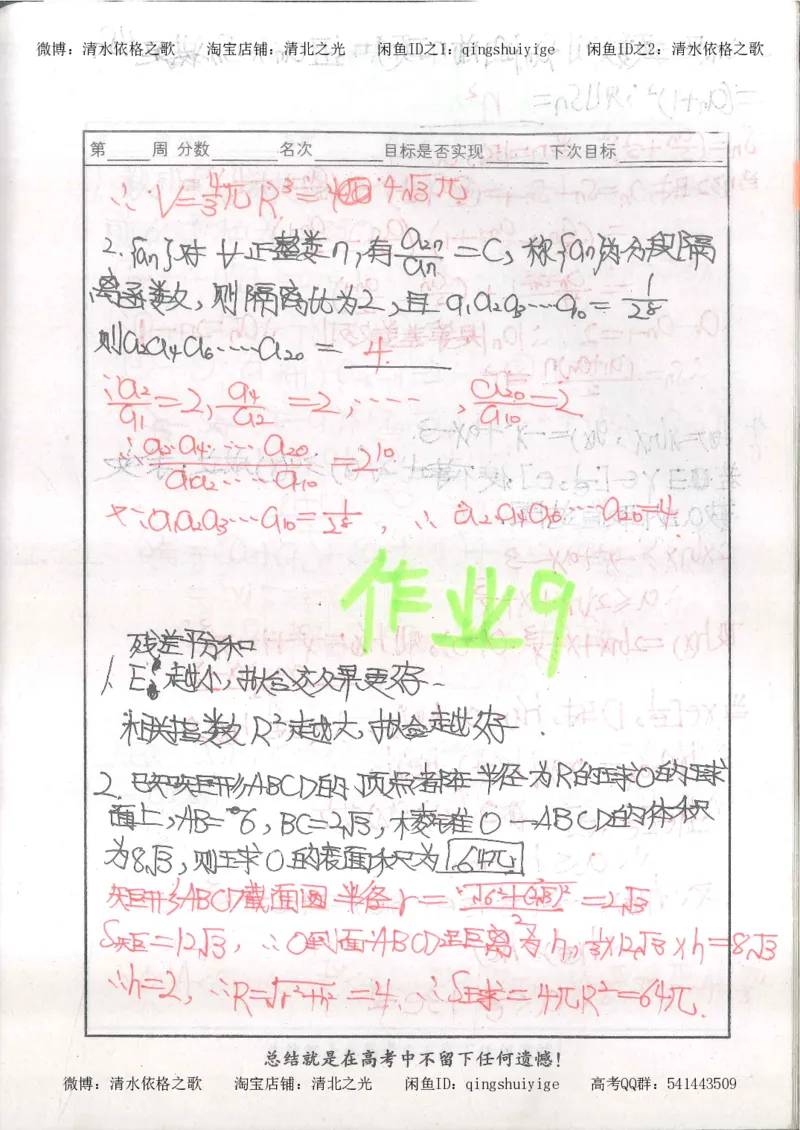 微博：清水依格之歌 淘宝店铺：清北之光 闲鱼ID之1：qingshuiyige 闲鱼ID之2：清水依格之歌
第____周 分数______名次______目标是否实现______下次目标______
∴V=4/3πR³=4√3π.
2.{an}对∀正整数n,有a2n/an=C,称{an}为分段隔
离函数,则隔离比为2,且a1a2a3……a10=1/2⁸
则a2a4a6……a20=4.
∴a2/a1=2,a4/a2=2,……,a20/a10=2
∴a2·a4……a20/a1a2……a10=2¹⁰.
又∵a1a2a3…a10=1/2⁸,∴a2·a4a6…a20=4.
作业9
残差平方和
1.E越小,拟合效果更好.
相关指数R²越大,拟合越好.
2.已知矩形ABCD的顶点都在半径为R的球O的球
面上,AB=6,BC=2√3,棱锥O-ABCD的体积
为8√3,则球O的表面积为64π
矩形ABCD截面圆半径r=√6²+(2√3)²/2=2√3
S矩=12√3,∴O到面ABCD距离为h,1/3×12√3×h=8√3
∴h=2,∴R=√r²+h²=4.∴S球=4πR²=64π.
总结就是在高考中不留下任何遗憾!
微博：清水依格之歌 淘宝店铺：清北之光 闲鱼ID：qingshuiyige 高考QQ群：541443509